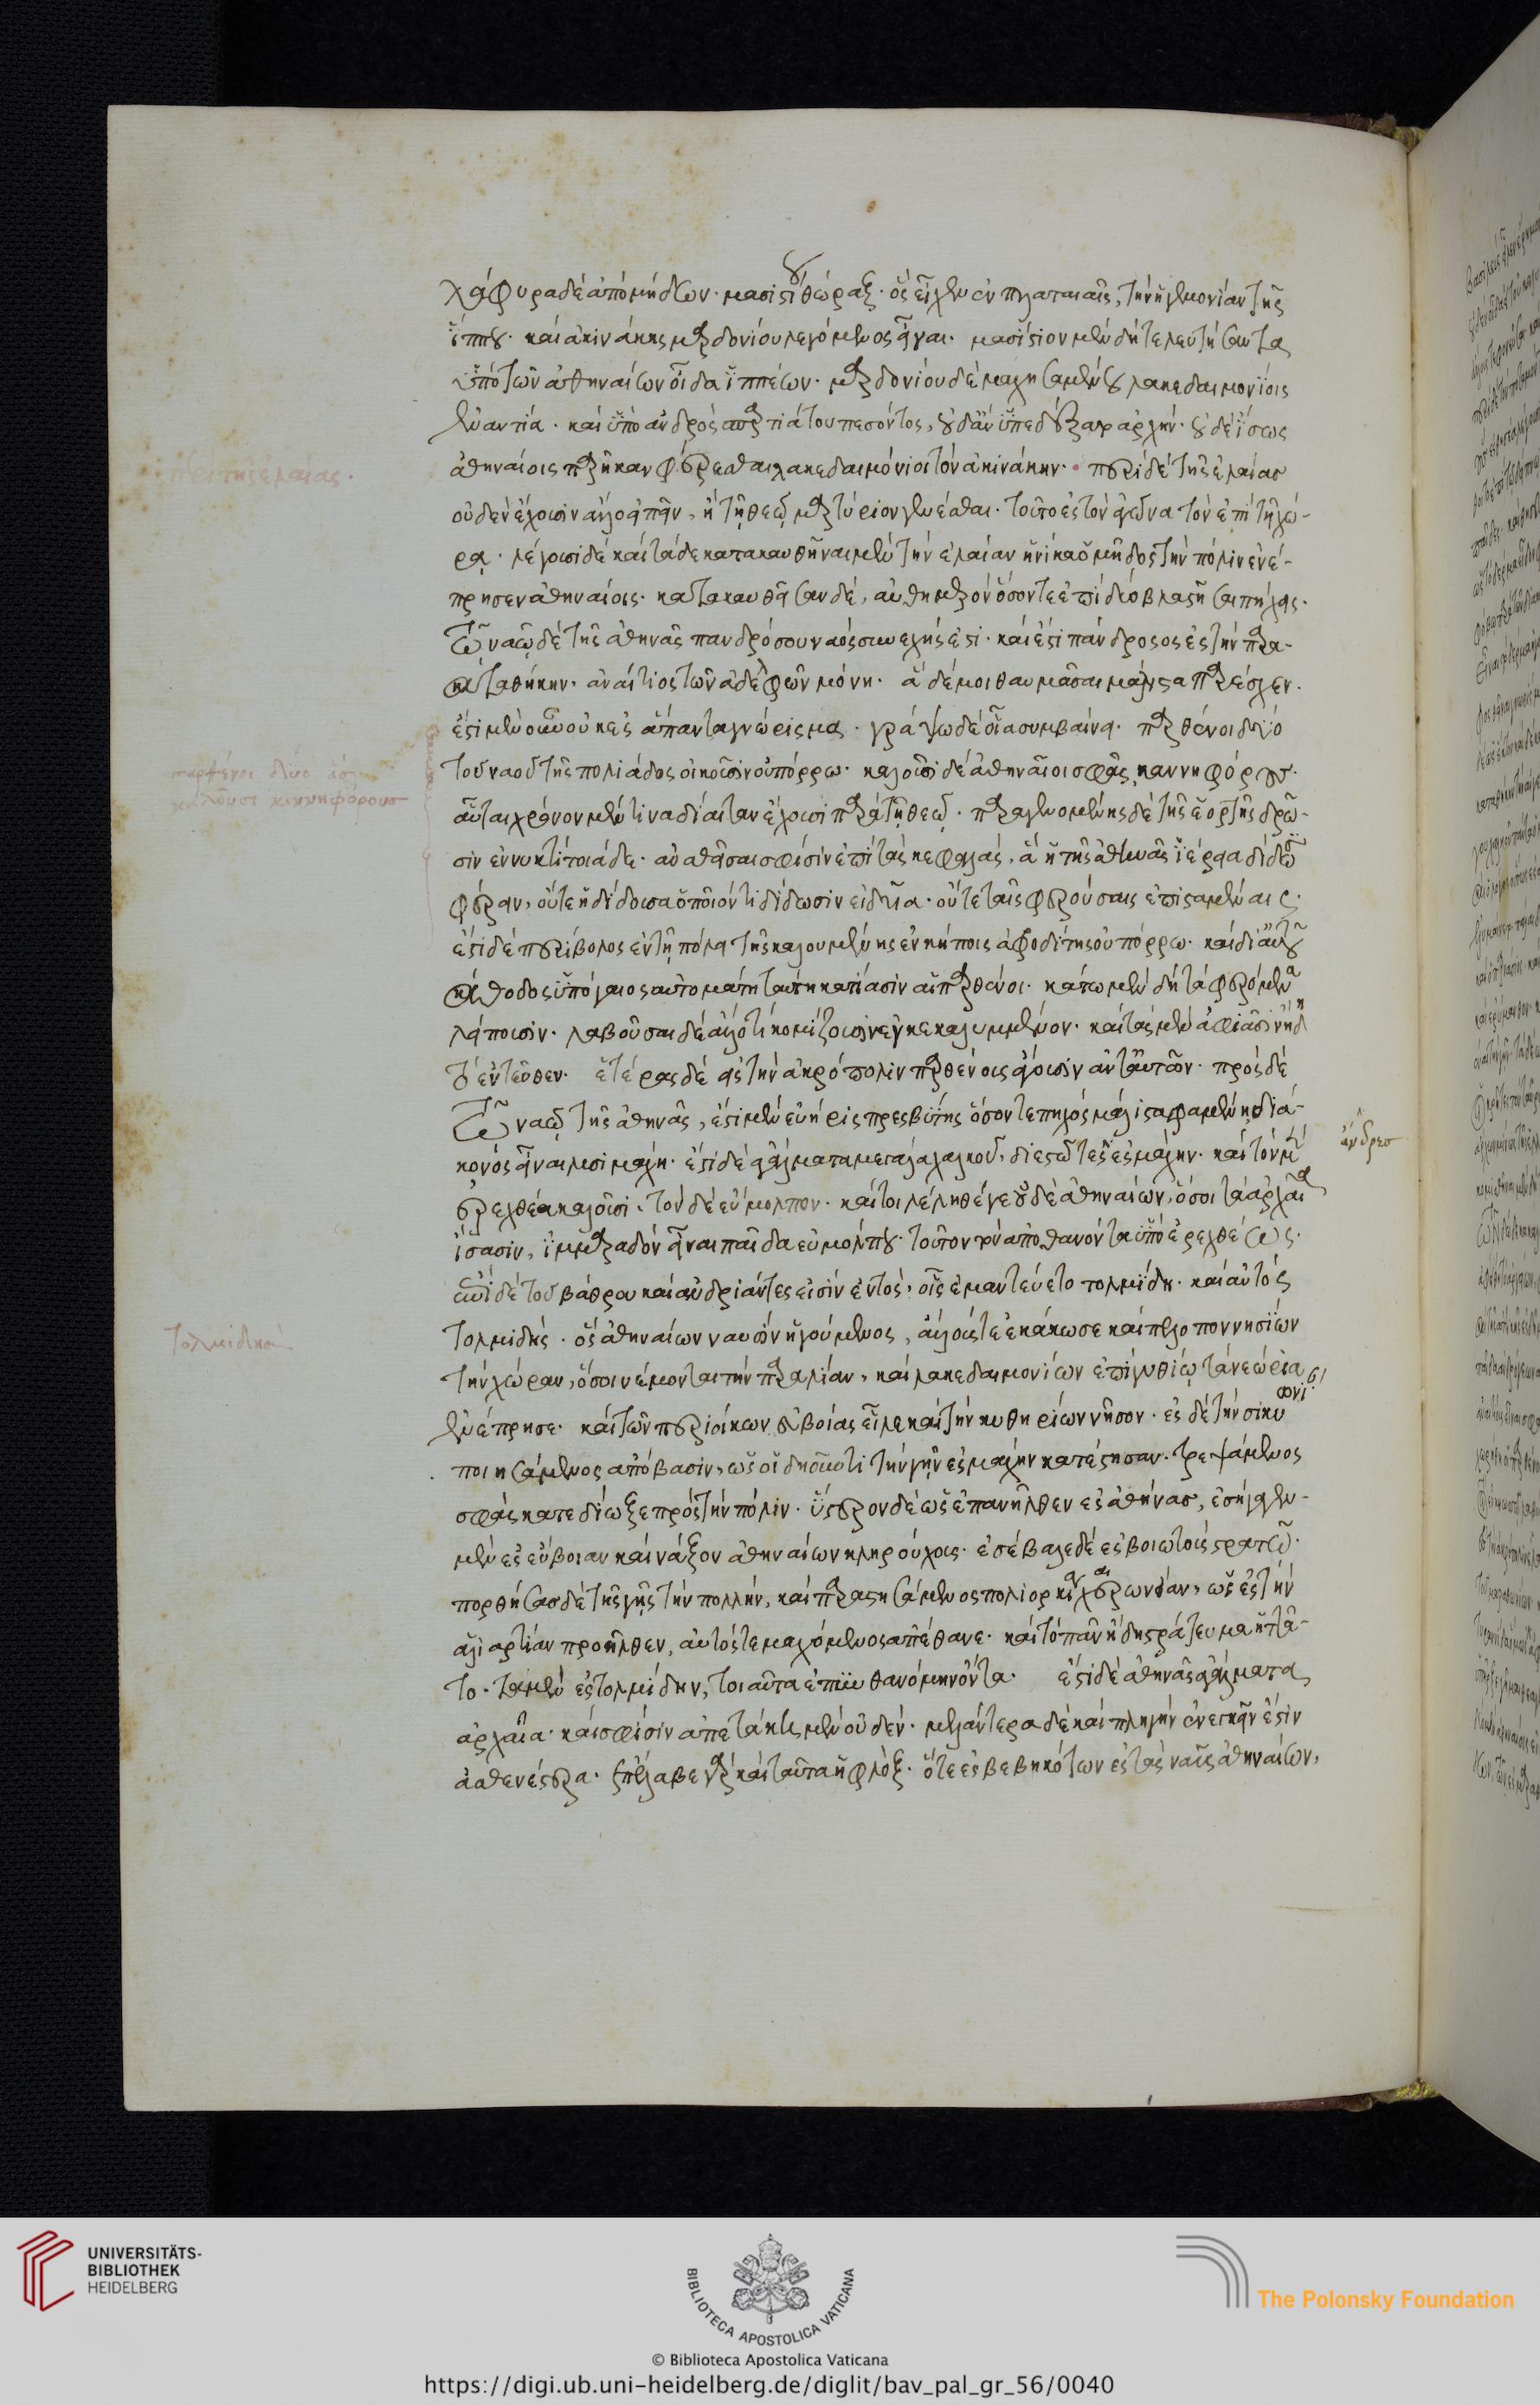 λάφυρα δὲ ἀπὸ μήδων· μασιστίου θώραξ· ὃς εἶχεν ἐν πλαταιαῖς, τὴν ἡγεμονίαν τῆς
ἵππου· καὶ ἀκινάκης μαρδονίου λεγόμενος εἶναι· μασίστιον μὲν δὴ τελευτήσαντα
ὑπὸ τῶν ἀθηναίων οἶδα ἱππέων· μαρδονίου δὲ μαχεσαμένου λακεδαιμονίοις
ἐναντία· καὶ ὑπὸ ἀνδρὸς σπαρτιάτου πεσόντος, οὐδ' ἂν ὑπεδέξαντο ἀρχήν· οὐδὲ ἴσως
ἀθηναίοις παρῆκαν φέρεσθαι λακεδαιμόνιοι τὸν ἀκινάκην· περὶ δὲ τῆς ἐλαίας
οὐδὲν ἔχουσιν ἄλλο εἰπεῖν, ἢ τῇ θεῷ μαρτύριον γενέσθαι· τοῦτο ἐς τὸν ἀγῶνα τὸν ἐπὶ τῇ χώ-
ρᾳ· λέγουσι δὲ καὶ τάδε κατακαυθῆναι μὲν τὴν ἐλαίαν ἡνίκα ὁ μῆδος τὴν πόλιν ἐνέ-
πρησεν ἀθηναίοις· κατακαυθεῖσαν δὲ, αὐθημερὸν ὅσον τε ἐπὶ δύο βλαστῆσαι πήχεις·
τῷ ναῷ δὲ τῆς ἀθηνᾶς πανδρόσου ναὸς συνεχής ἐστι· καὶ ἔστι πάνδροσος ἐς τὴν παρα-
καταθήκην· ἀναίτιος τῶν ἀδελφῶν μόνη· ἃ δέ μοι θαυμάσαι μάλιστα παρέσχεν·
ἔστι μὲν οὖν οὐκ ἐς ἅπαντα γνώρισμα· γράψω δὲ οἷα συμβαίνει· παρθένοι δύο
τοῦ ναοῦ τῆς πολιάδος οἰκοῦσιν οὐ πόρρω· καλοῦσι δὲ ἀθηναῖοι σφᾶς κανηφόρους·
αὗται χρόνον μέν τινα δίαιταν ἔχουσι παρὰ τῇ θεῷ· παραγενομένης δὲ τῆς ἑορτῆς δρῶ-
σιν ἐν νυκτὶ τοιάδε· ἀναθεῖσαί σφισιν ἐπὶ τὰς κεφαλάς, ἃ ἡ τῆς ἀθηνᾶς ἱέρεια δίδωσι
φέρειν, οὔτε ἡ διδοῦσα ὁποῖόν τι δίδωσιν εἰδυῖα· οὔτε ταῖς φερούσαις ἐπισταμέναις·
ἔστι δὲ περίβολος ἐν τῇ πόλει τῆς καλουμένης ἐν κήποις ἀφροδίτης οὐ πόρρω· καὶ δι' αὐτοῦ
κάθοδος ὑπόγαιος αὐτομάτη ταύτῃ κατίασιν αἱ παρθένοι· κάτω μὲν δὴ τὰ φερόμενα
λείπουσιν· λαβοῦσαι δὲ ἄλλο τι κομίζουσιν ἐγκεκαλυμμένον· καὶ τὰς μὲν ἀφιᾶσιν ἤδη
τὸ ἐντεῦθεν· ἑτέρας δὲ εἰς τὴν ἀκρόπολιν παρθένοις ἄγουσιν ἀντ' αὐτῶν· πρὸς δὲ
τῷ ναῷ τῆς ἀθηνᾶς, ἔστι μὲν εὐήρις πρεσβύτης ὅσον τε πήχος μάλιστα φαμένη διά-
κονος εἶναι λυσιμάχη· ἔστι δὲ ἀγάλματα μεγάλα χαλκοῦ, διεστῶτες ἐς μάχην· καὶ τὸν μὲν
ἐρεχθέα καλοῦσι· τὸν δὲ εὔμολπον· καίτοι λέληθέ γε οὐδὲ ἀθηναίων, ὅσοι τὰ ἀρχαῖα
ἴσασιν, ἰμμάραδον εἶναι παῖδα εὐμόλπου· τοῦτον τὸν ἀποθανόντα ὑπὸ ἐρεχθέως·
ἐπὶ δὲ τοῦ βάθρου καὶ ἀνδριάντες εἰσὶν ἐντὸς, οἷς ἐμαντεύετο τολμίδῃ· καὶ αὐτὸς
τολμίδης· ὃς ἀθηναίων ναυσὶν ἡγούμενος, ἄλλους τε ἐκάκωσε καὶ πελοποννησίων
τὴν χώραν, ὅσοι νέμονται τὴν παραλίαν, καὶ λακεδαιμονίων ἐπὶ γυθίῳ τὰ νεώρια
ἐνέπρησε· καὶ τῶν περιοίκων εὐβοίας εἷλε καὶ τὴν κυθηρίων νῆσον· ἐς δὲ τὴν σικυωνίαν
ποιησάμενος ἀπόβασιν, ὥς οἱ δῃοῦντι τὴν γῆν ἐς μάχην κατέστησαν· τρεψάμενος
σφᾶς κατεδίωξε πρὸς τὴν πόλιν· ὕστερον δὲ ὡς ἐπανῆλθεν ἐς ἀθήνας, ἐσήγαγεν
μὲν ἐς εὔβοιαν καὶ νάξον ἀθηναίων κληρούχους· ἐσέβαλε δὲ ἐς βοιωτοὺς στρατῷ·
πορθήσας δὲ τῆς γῆς τὴν πολλὴν, καὶ παραστησάμενος πολιορκίᾳ χαιρωνείαν, ὡς ἐς τὴν
ἁλιαρτίαν προῆλθεν, αὐτός τε μαχόμενος ἀπέθανε· καὶ τὸ πᾶν ἤδη στράτευμα ἡττᾶ-
το· τὰ μὲν ἐς τολμίδην, τοιαῦτα ἐπυνθανόμην ὄντα· ἔστι δὲ ἀθηνᾶς ἀγάλματα
ἀρχαῖα· καί σφισιν ἀπετάκη μὲν οὐδέν· μελάντερα δὲ καὶ πληγὴν ἐνεγκεῖν ἐστιν
ἀσθενέστερα· ἐπέλαβε γὰρ καὶ ταῦτα ἡ φλόξ· ὅτε ἐσβεβηκότων ἐς τὰς ναῦς ἀθηναίων,
περὶ τῆς ἐλαίας.
παρθένοι δύο ἃς
καλοῦσι κανηφόρους
τολμίδης
ἄνδρες
UNIVERSITÄTS-
BIBLIOTHEK
HEIDELBERG
BIBLIOTECA APOSTOLICA VATICANA
© Biblioteca Apostolica Vaticana
The Polonsky Foundation
https://digi.ub.uni-heidelberg.de/diglit/bav_pal_gr_56/0040